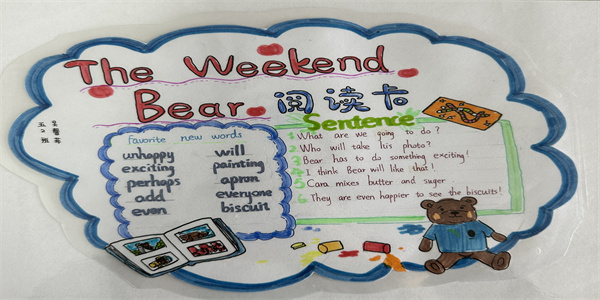 The Weekend
Bear 阅读卡
五2班
favorite new words
unhappy will
exciting painting
perhaps apron
add everyone
even biscuit
Sentence
1 What are we going to do?
2 Who will take his photo?
3 Bear has to do something exciting!
4 I think Bear will like that!
5 Cara mixes butter and suger
6 They are even happier to see the biscuits!